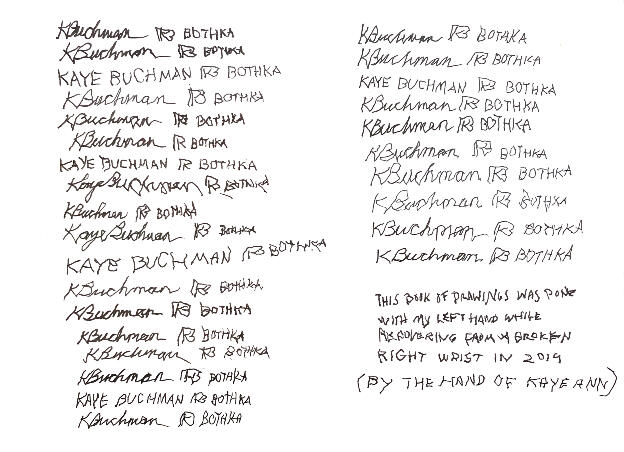 KBuchman RB BOTHKA
KBuchman RB BOTHKA
KAYE BUCHMAN RB BOTHKA
KBuchman RB BOTHKA
KBuchman RB BOTHKA
KBuchman RB BOTHKA
KAYE BUCHMAN RB BOTHKA
Kaye Buchman RB BOTHKA
KBuchman RB BOTHKA
Kaye Buchman RB BOTHKA
KAYE BUCHMAN RB BOTHKA
KBuchman RB BOTHKA
KBuchman RB BOTHKA
KBuchman RB BOTHKA
KBuchman RB BOTHKA
KBuchman RB BOTHKA
KAYE BUCHMAN RB BOTHKA
KBuchman RB BOTHKA
KBuchman RB BOTHKA
KBuchman RB BOTHKA
KAYE BUCHMAN RB BOTHKA
KBuchman RB BOTHKA
KBuchman RB BOTHKA
KBuchman RB BOTHKA
KBuchman RB BOTHKA
KBuchman RB BOTHKA
KBuchman RB BOTHKA
KBuchman RB BOTHKA
THIS BOOK OF DRAWINGS WAS DONE
WITH MY LEFT HAND WHILE
RECOVERING FROM A BROKEN
RIGHT WRIST IN 2019
(BY THE HAND OF KAYE ANN)